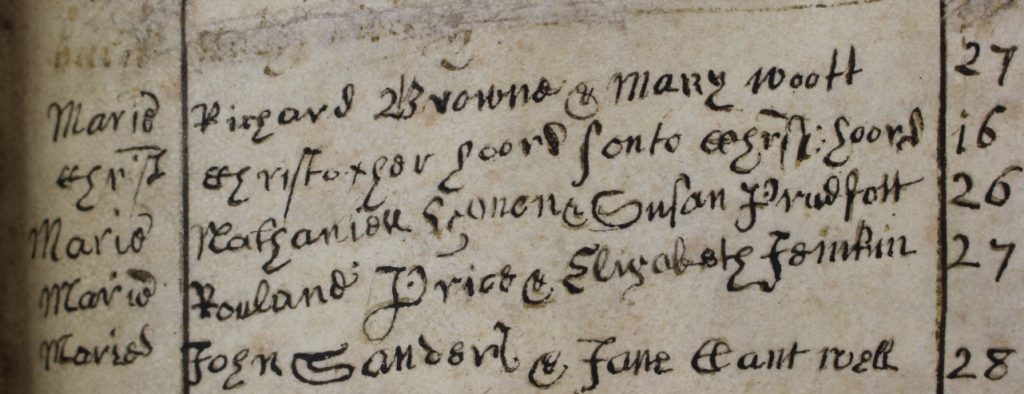 Maried Richard Browne & Mary Woott 27
Christ Christopher hoord sonto Christ: hoord 16
Maried Nathaniell & Susan Prudfott 26
Maried Rouland Price & Elizabeth Jemkin 27
Maried John Sanders & Jane Cantwell 28